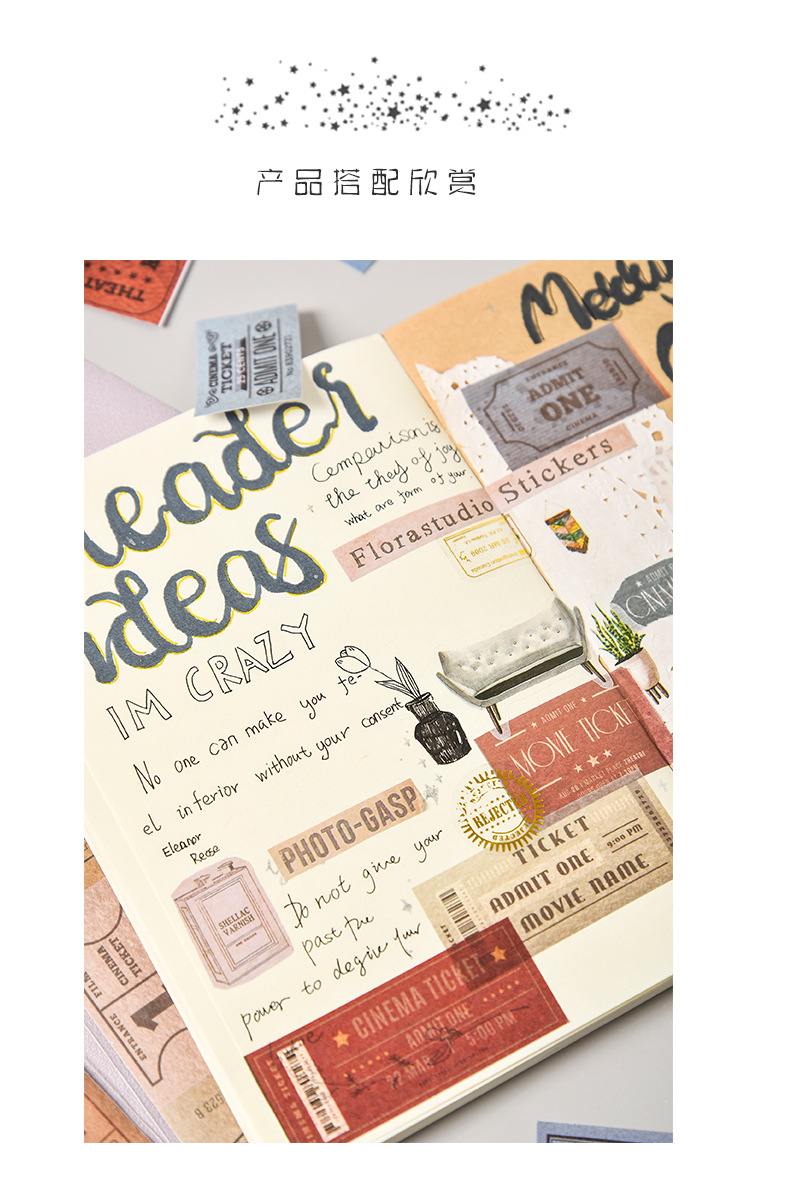 产品搭配欣赏
THEAT
CINEMA
TICKET
ADMIT ONE
No 83902721
Header
ideas
Comparison is
the they of joy
what are form of your
ENTRANCE
ADMIT
ONE
CINEMA
Florastudio Stickers
IM CRAZY
No one can make you fe-
el inferior without your consent
Eleanor
Reose
ADMIT O
ADMIT ONE
MOVIE TICKE
REJECTED
REJECTED
PHOTO-GASP
TICKET
ADMIT ONE
MOVIE NAME
9:00 PM
TICKET
SHELLAC
VARNISH
Do not give your
past the
power to degine your
CINEMA TICKET
ADMIT ONE
22 MAR
5:00 PM
CINEMA TICKET
TICKET
CINEMA
FILM
ENTRANCE
1
523 B